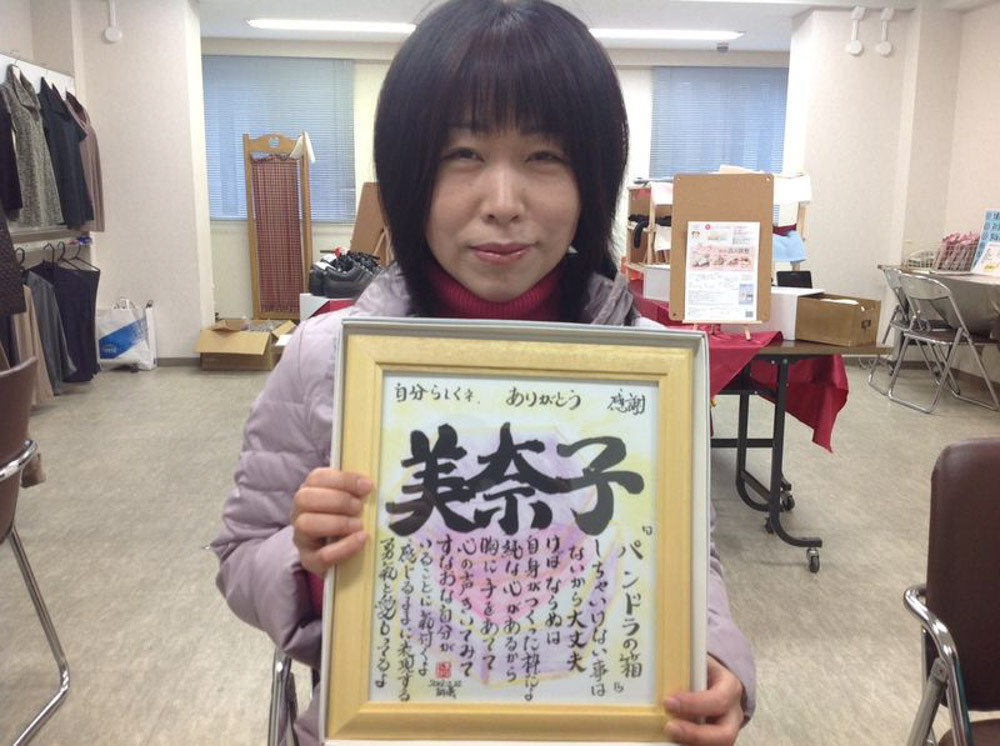 自分らしくネ. ありがとう 感謝
美奈子
"パンドラの箱"
しちゃいけない事は
ないから大丈夫
けばならぬは
自身がつくった枠だよ
純な心があるから
胸に手をあてて
心の声きいてみて
すなおな自分が
いることに気付くよ
感じるままに表現する
勇気と愛もってるよ